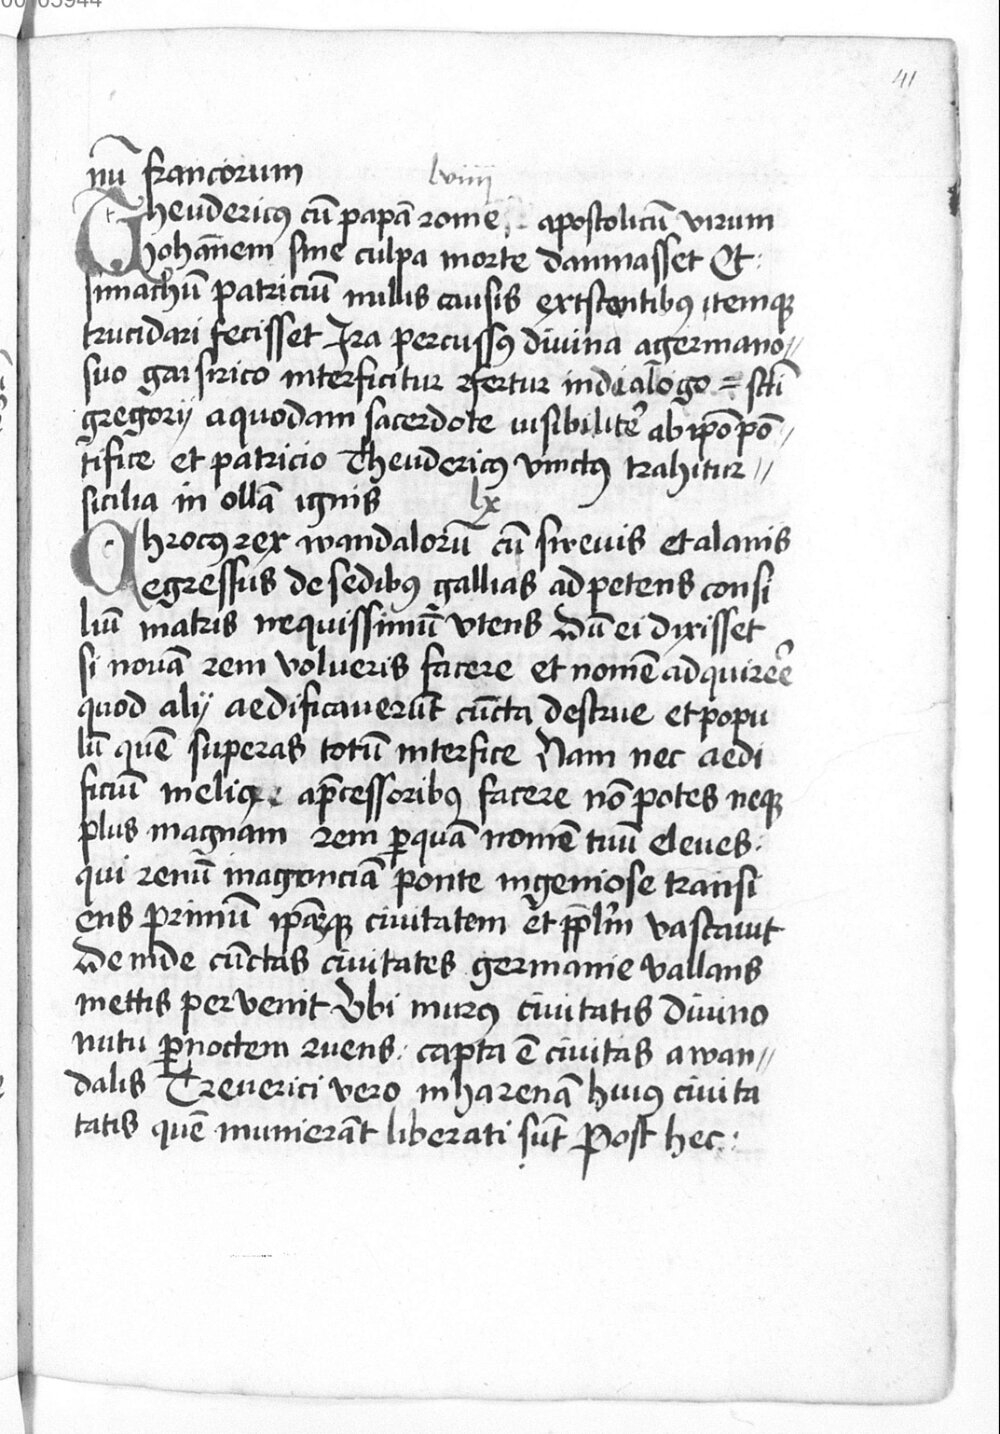 41
nū francorum
lviiij
Theudericꝰ cū papā rome apostolicū virum
Iohānem sine culpa morte dannasset Et:
simachū patriciū nullis causis extstentibꝰ itemqꝫ
trucidari fecisset Ira percussꝰ divina agermano//
suo gaisirico interficitur rfertur indialogo = scti
gregorij aquodam sacerdote uisibilitẽ ab ipō pō//
tifice et patricio Theudericꝰ vinctꝰ trahitur//
sicilia in ollā ignis
lx
Chrocꝰ rex wandalorū cū swevis et alanis
egressus de sedibꝰ gallias adpetens consi
liū matris nequissimū vtens Dū ei dixisset
si novā rem volueris facere et nomē adquirēe
quod alij aedificaverūt cūcta destrue et popu
lū quē superas totū interfice Nam nec aedi
ficiū meliꝰ ap̄cessoribꝰ facere nō potes neqꝫ
plus magnam rem ꝑquā nomē tuū eleves:
qui renū magonciā ponte ingeniose transi
ens primū ipāqꝫ civitatem et pp̄lm vastavit
Deinde cūctas civitates germanie vallans
mettis pervenit Vbi murꝰ civitatis divino
nutu ꝑnoctem ruens: capta ē civitas a wan//
dalis Treverici vero inharenā huiꝰ civita
tatis quē munierāt liberati sūt Post hec: